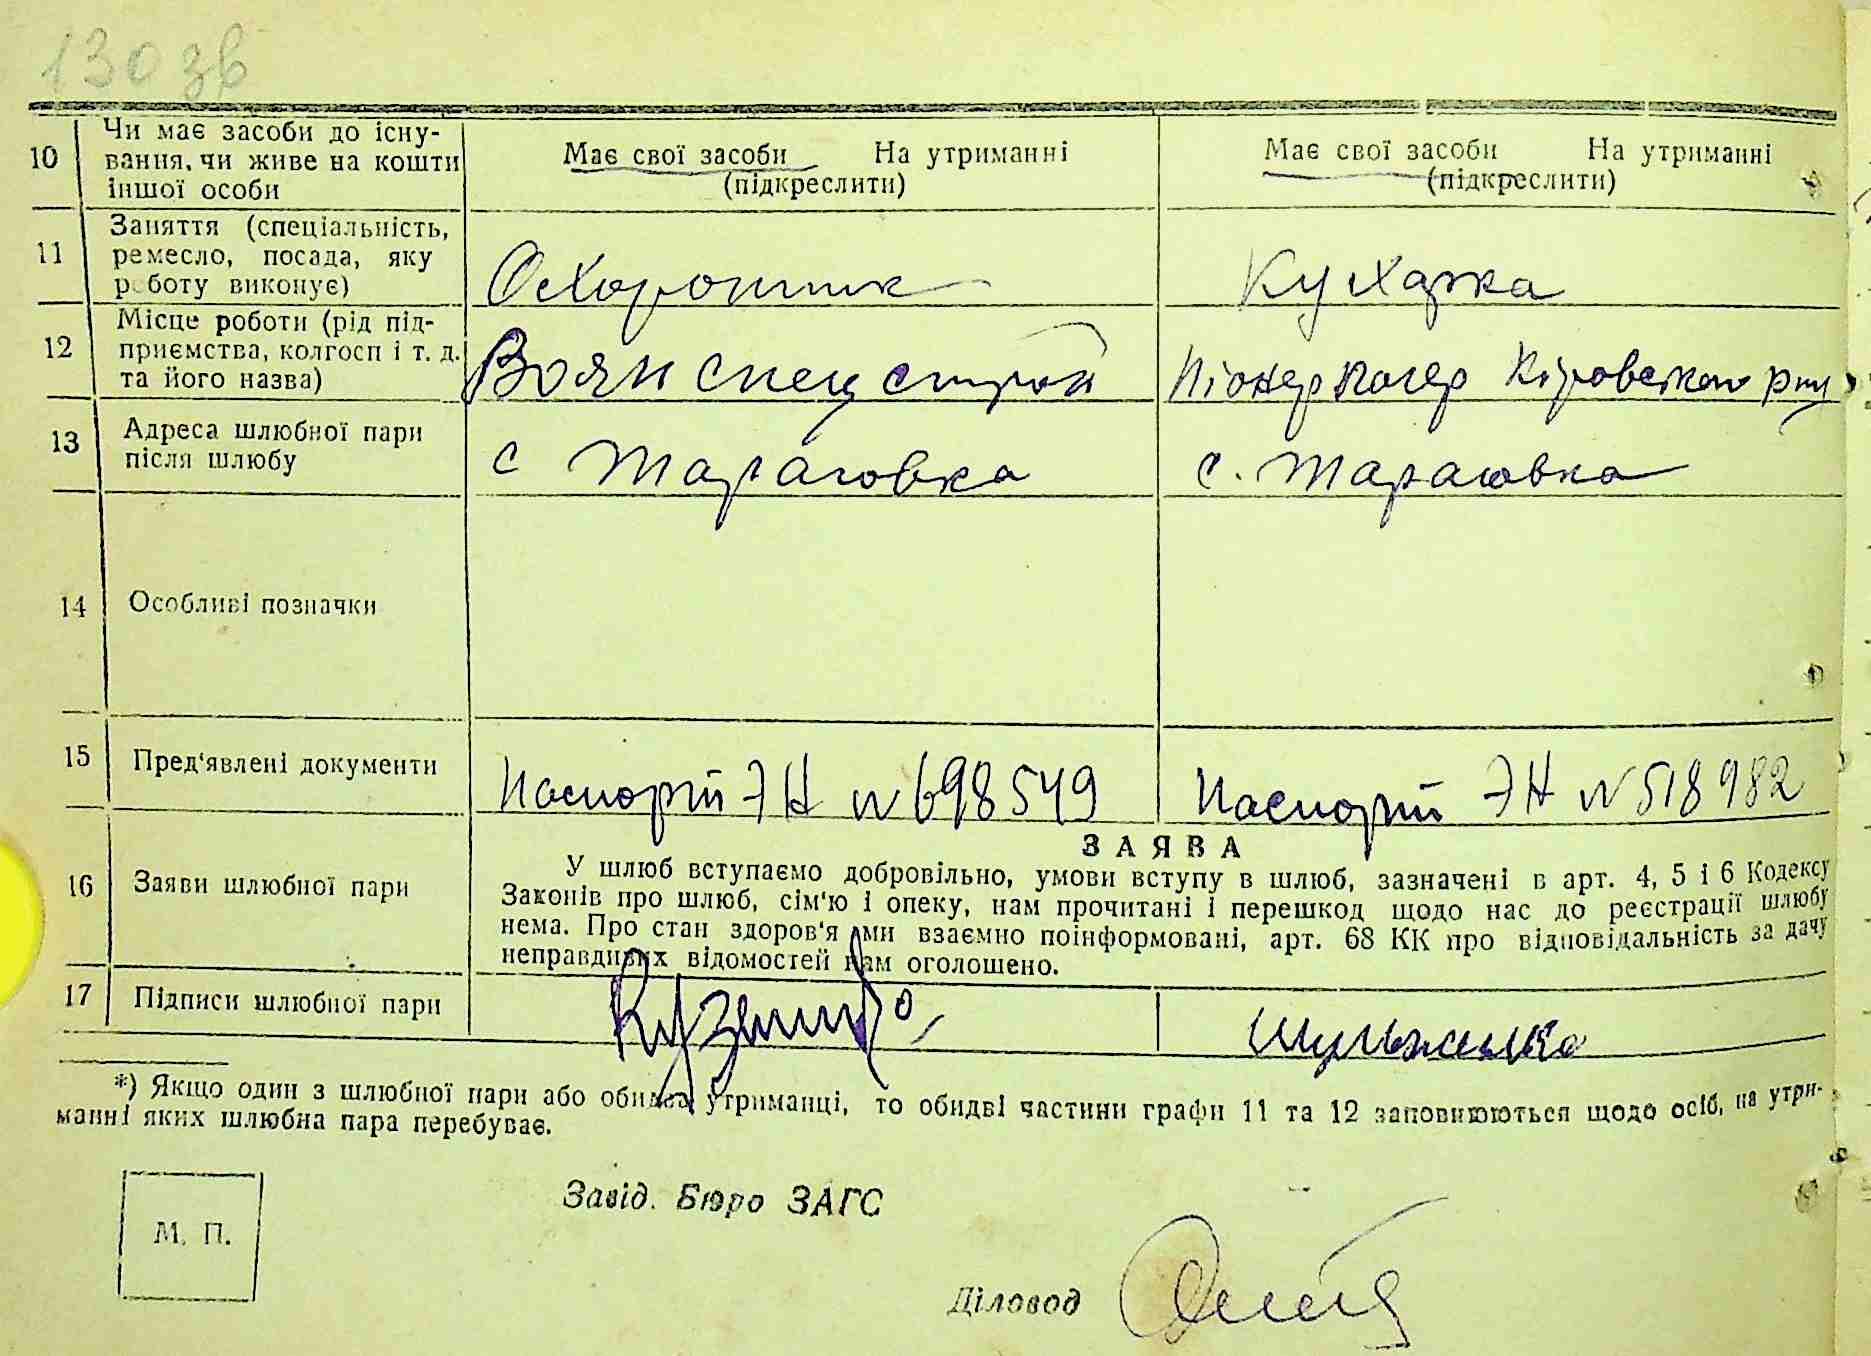 130 зв
10 Чи має засоби до існу-
вання, чи живе на кошти
іншої особи
Має свої засоби На утриманні
(підкреслити)
Має свої засоби На утриманні
(підкреслити)
11 Заняття (спеціальність,
ремесло, посада, яку
роботу виконує)
Охоронник
Кухарка
12 Місце роботи (рід під-
приємства, колгосп і т. д.
та його назва)
Воян спец строй
Піонер лагер Кіровского рну
13 Адреса шлюбної пари
після шлюбу
с Тарасовка
с. Тарасовка
14 Особливі позначки
15 Пред'явлені документи
Паспорт ЭН N 698549
Паспорт ЭН N 518982
16 Заяви шлюбної пари
ЗАЯВА
У шлюб вступаємо добровільно, умови вступу в шлюб, зазначені в арт. 4, 5 і 6 Кодексу
Законів про шлюб, сім'ю і опеку, нам прочитані і перешкод щодо нас до реєстрації шлюбу
нема. Про стан здоров'я ми взаємно поінформовані, арт. 68 КК про відповідальність за дачу
неправдивих відомостей нам оголошено.
17 Підписи шлюбної пари
Шульженко
*) Якщо один з шлюбної пари або обидва утриманці, то обидві частини графи 11 та 12 заповнюються щодо осіб, на утри-
манні яких шлюбна пара перебуває.
М. П.
Завід. Бюро ЗАГС
Діловод